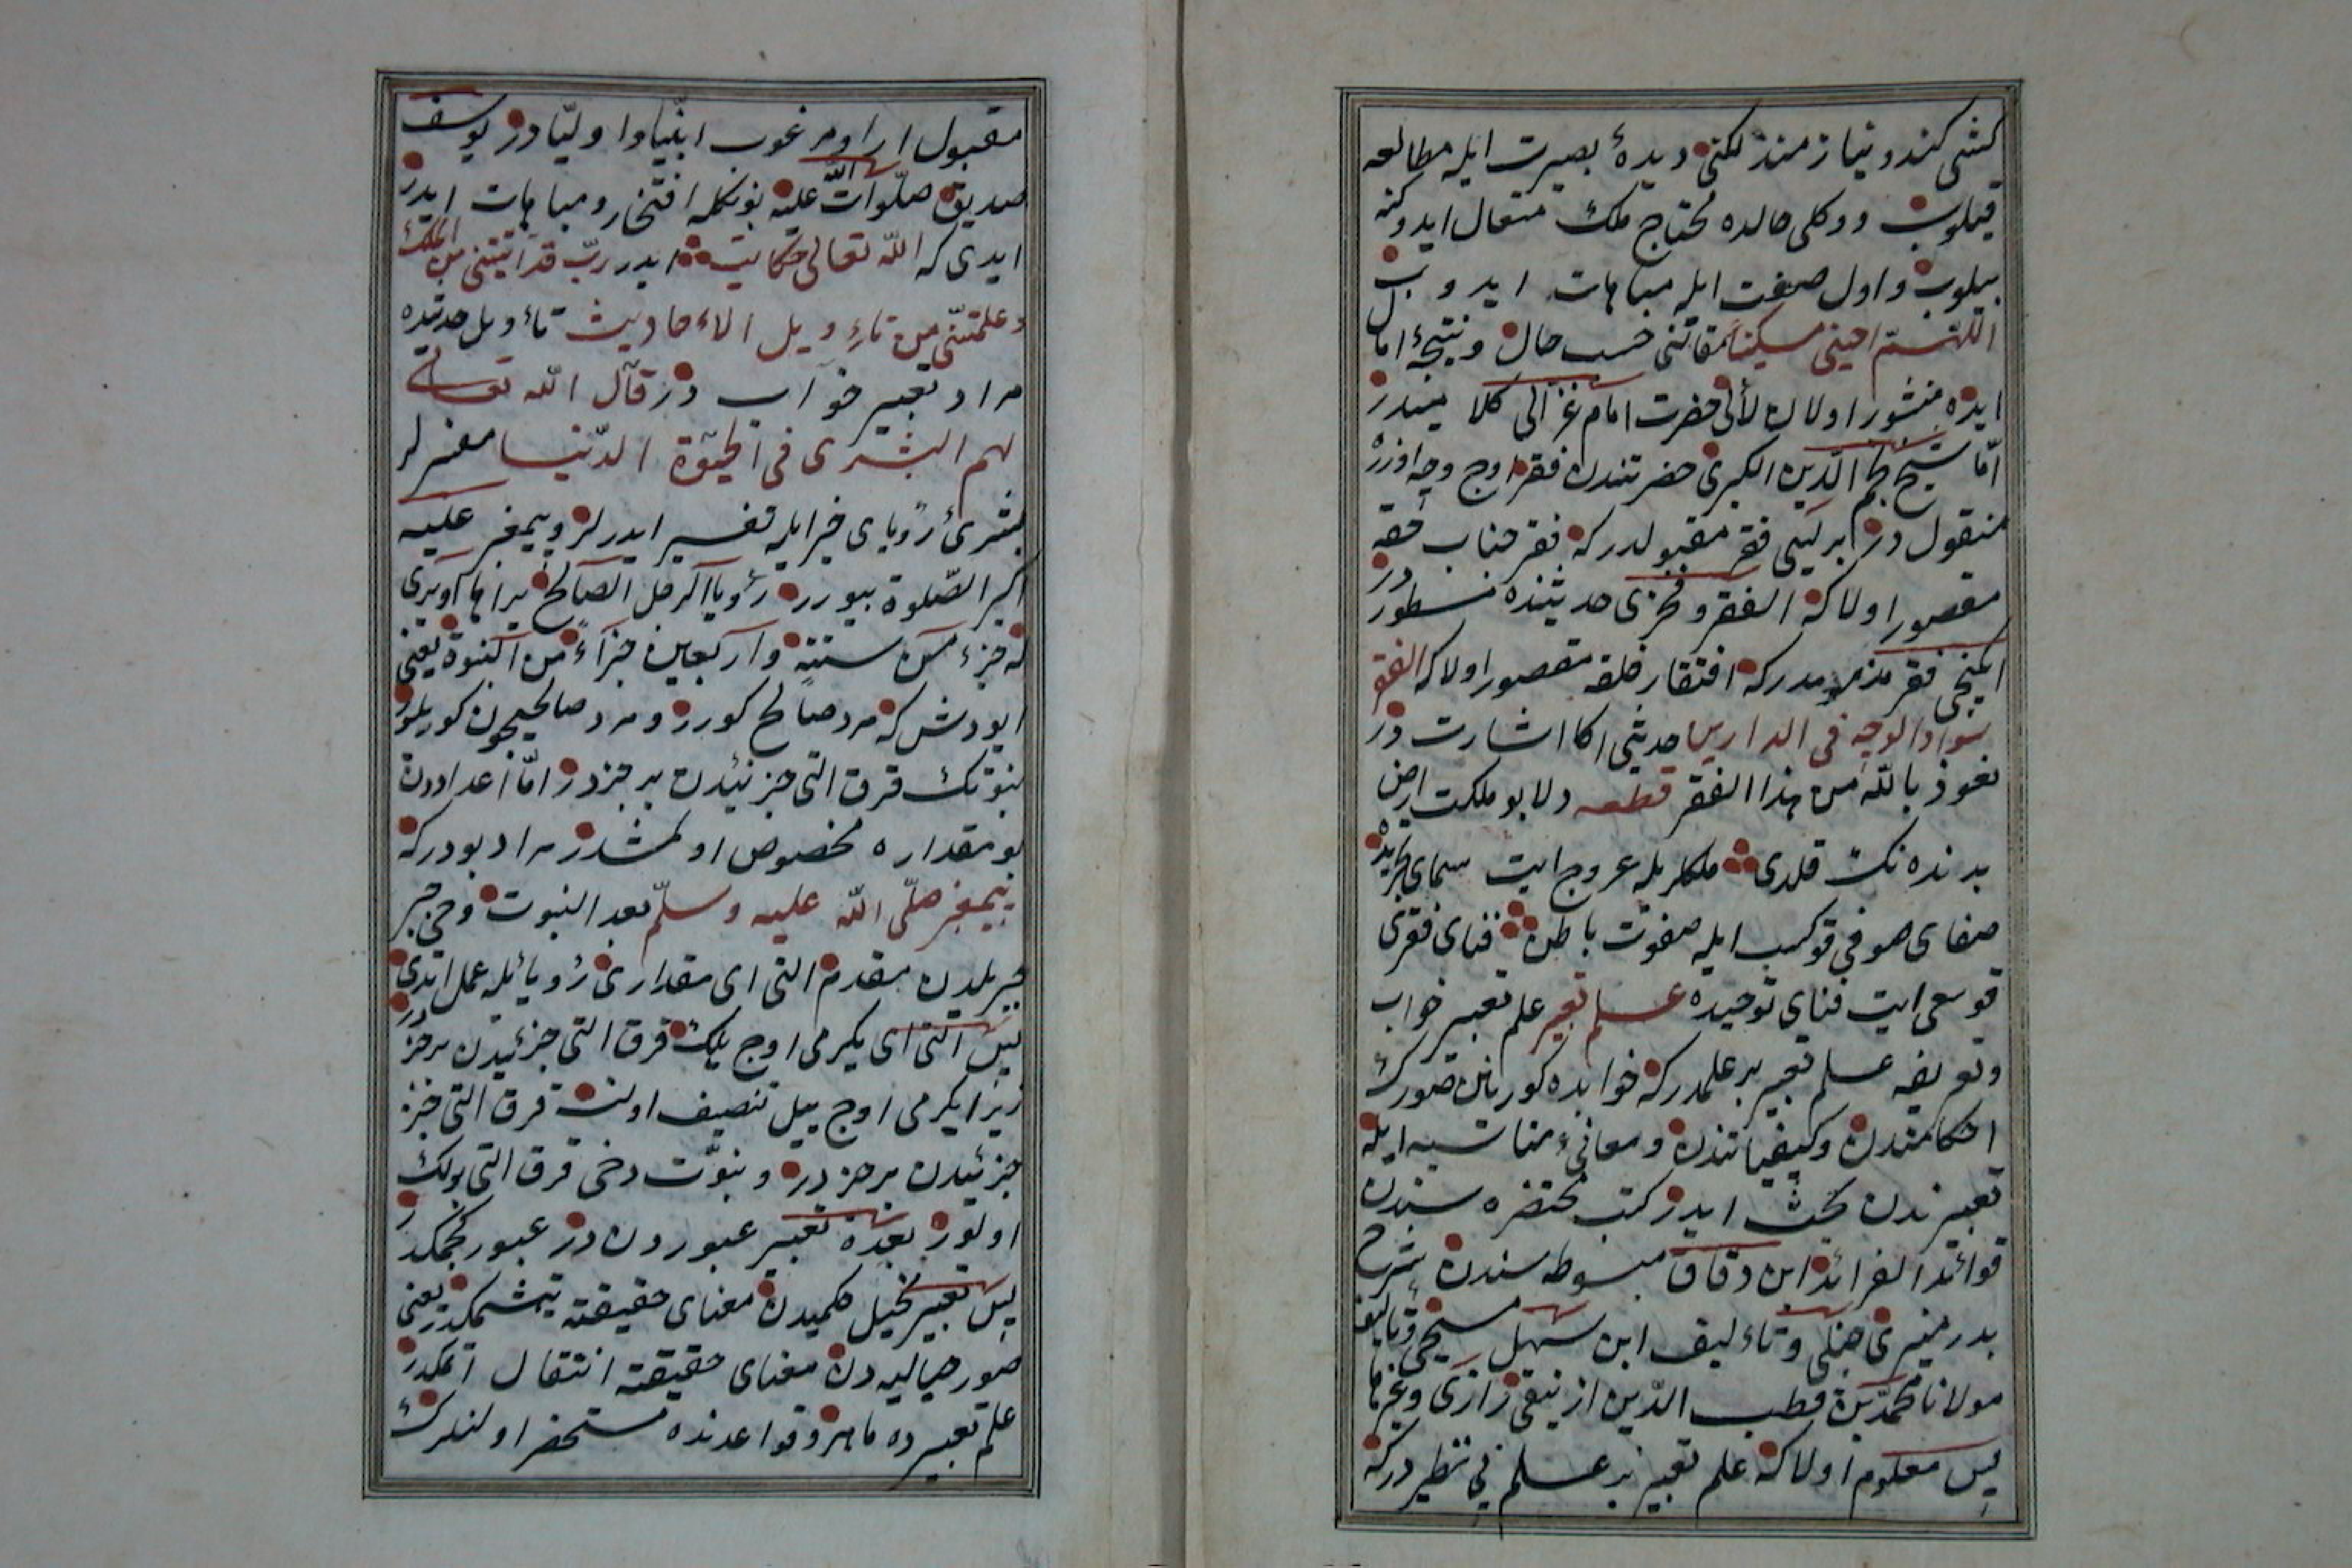 كشى كندو نياز مندلكنى ديدۀ بصيرت ايله مطالعه
قيلوب و كلى حالده محتاج ملك متعال ايدوكنه
بيلوب و اول صفت ايله مباهات ايدوب
اللهم احينى مسكينا مقالنى حسب حال و نتيجۀ امال
ايده منشور اولان لألى حضرت امام غزالى كلاميندر
امّا شيخ نجم الدين الكبرى حضرتندن فقر اوج وجه اوزره
منقول در بريسى فقر مقبولدركه فقر جناب حقه
مقصور اولاكه الفقر فخرى حديثنده مسطور در
ايكنجى فقر مذمومدركه افتقار خلقه مقصور اولاكه الفقر
سواد الوجه فى الدارين حديثى اكا اشارت در
نعوذ بالله من هذا الفقر قطعه دلا بو ملكت ارض
بدنده نك قلدى ملكلر بله عروج ايت سماى تجريده
صفاى صوفى قو كسب ايله صفوت باطن فناى فقرى
قو سعى ايت فناى توحيده علم تعبير علم تعبير خواب
و تعريفه علم تعبير بر علمدركه خوابده كورينن صورك
احكامندن وكيفياتندن و معانىء مناسبه ايله
تعبيرندن بحث ايدر كتب مختصره سندن
فوائد الفرائد ابن دقاق مبسوطه سندن شرح
بدر منيرى حنبلى و تاءليف ابن سهل مسيحى و تاليف
مولانا محمد بن قطب الدين ازنيقى رازى وغيرها
پس معلوم اولاكه علم تعبير بر علم بى نظيردركه
مقبول ارا و مرغوب انبيا و اوليادر يوسف
صديق صلوات الله عليه بونكله افتخار و مباهات ايدر
ايدى كه الله تعالى حكايت ايدر ربّ قد اتيتنى من الملك
وعلمتنى من تاءويل الاءحاديث تاءويل حديثده
مراد تعبير خواب در قال الله تعالى
لهم البشرى فى الحيوة الدنيا مفسرلر
بشرىء رؤياى خير ايله تفسير ايدرلر و پيغمبر عليه
اكبر الصلوة بيورر رؤيا الرجل الصالح يراها او يرى
له جزء من ستة و اربعين جزاءً من النبوة يعنى
ايو دش كه مرد صالح كورر و مرد صالحيچون كوريلور
نبوتك قرق التى جزئيدن بر جزدر امّا اعداددن
بو مقداره مخصوص اولمشدر مراد بودركه
پيغمبر صلّى الله عليه وسلّم بعد النبوت وحى جبر
جبريلدن مقدم التى اى مقدارى رؤيا يله عمل ايتدى
پس التى اى يكرمى اوج ييلك قرق التى جزئيدن بر جزدر
زيرا يكرمى اوج ييل تنصيف اولنسه قرق التى جزء
جزئيدن بر جزدر و نبوّت دخى قرق التى بولك
اولور بعده تعبير عبوردن در عبور كچمكدر
پس تعبير تخيل كلميدن معناى حقيقته يتشمكدر يعنى
صور خياليه دن معناى حقيقته انتقال اتمكدر
علم تعبيرده ماهر و قواعدنده مستحضر اولنلرك